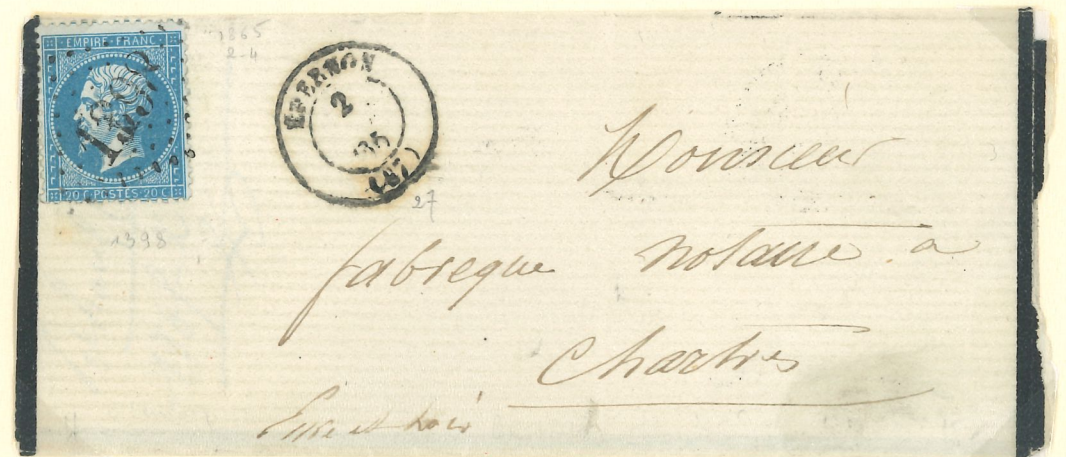 EMPIRE FRANC
20 C POSTES 20 C
1398
1865
2-4
EPERNON
2
65
(27)
27
1398
Monsieur
fabreque notaire a
Chartres
Eure et Loir